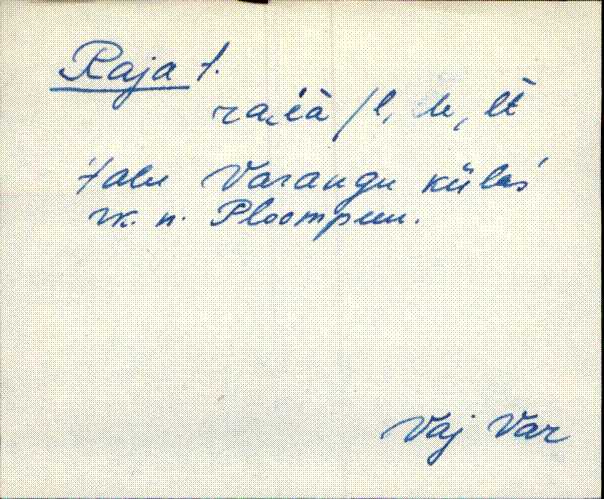 Raja t.
rai̯à /l, le, lt̀
talu Varangu külas
rk. n. Ploompuu.
Vaj Var